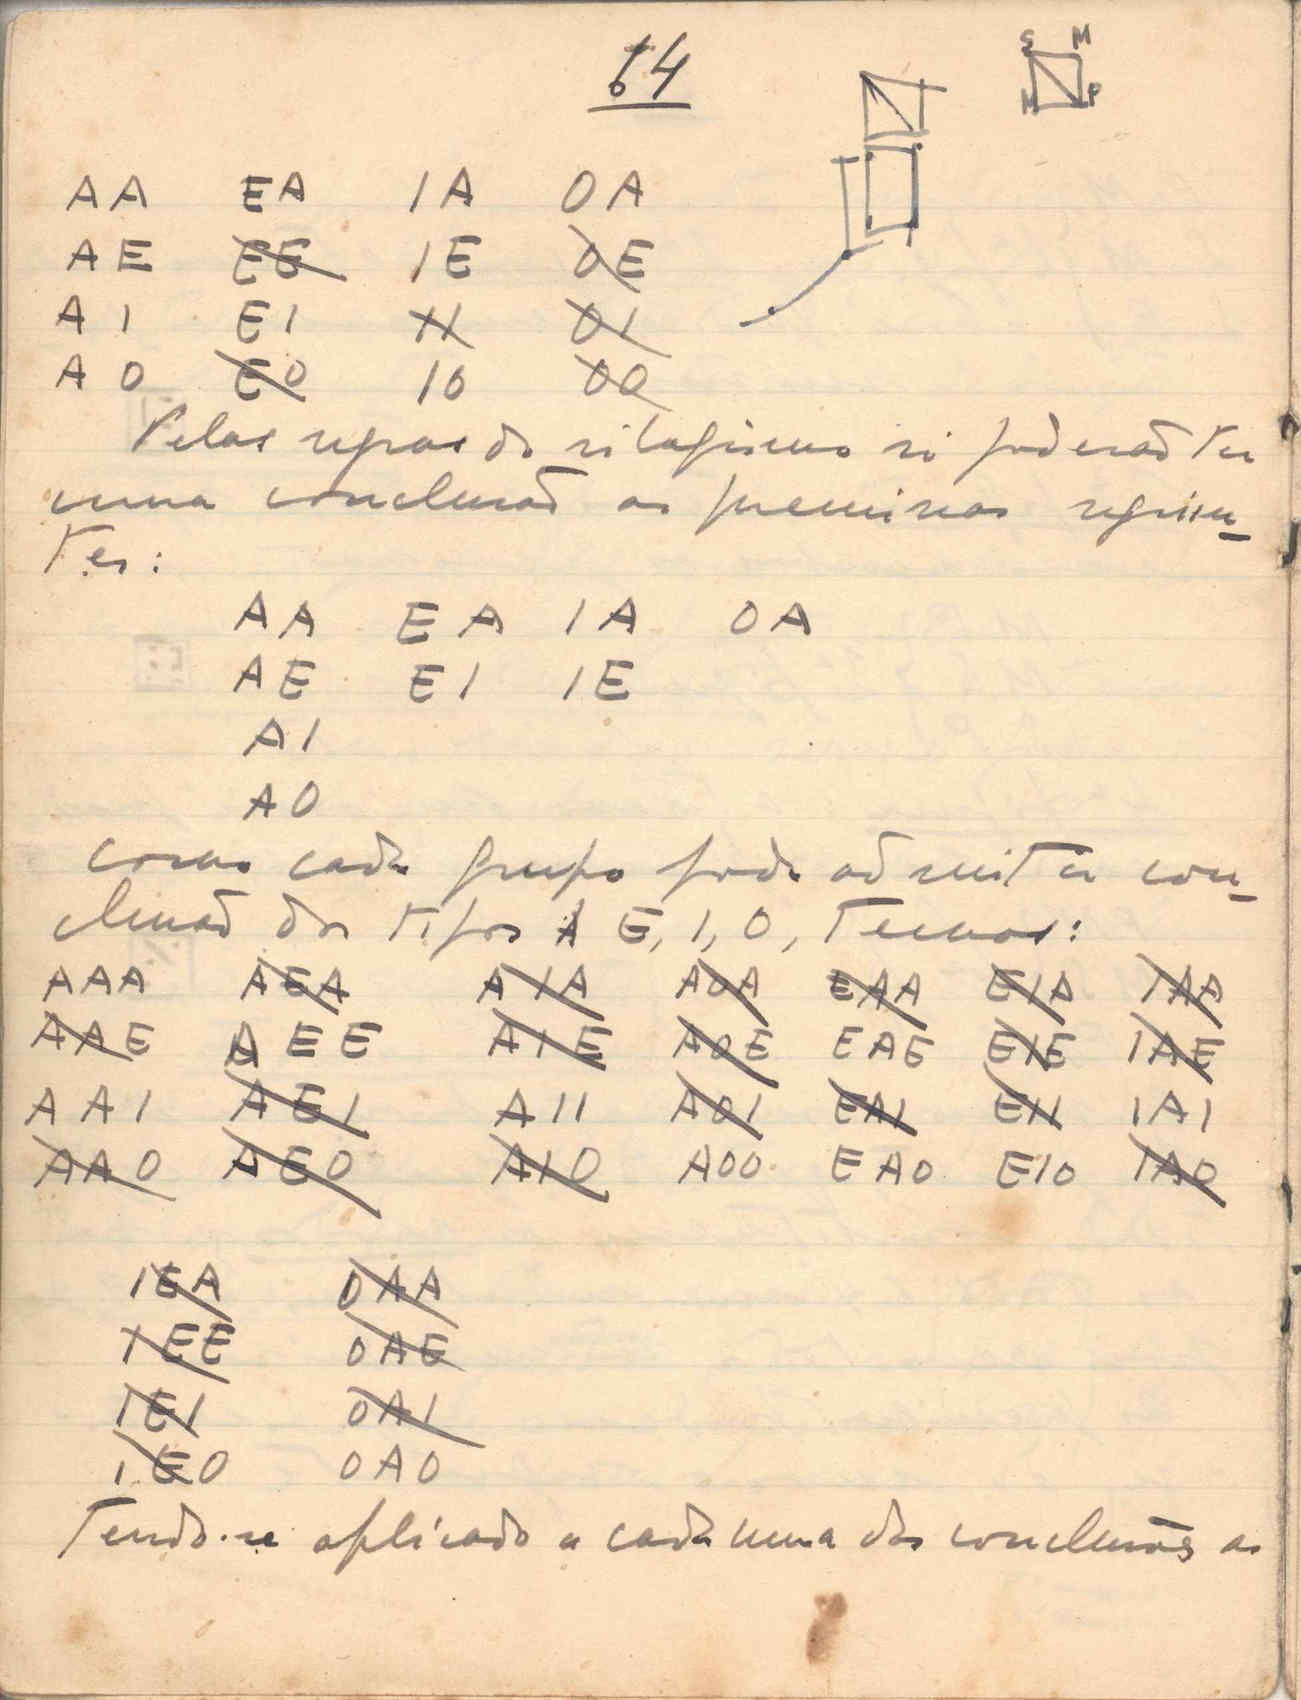 64
S M
P
AA EA IA OA
AE EE IE OE
AI EI II OI
AO EO IO OO
Pelas regras do silogismo só poderão ter
uma conclusão as premissas seguin-
tes:
AA EA IA OA
AE EI IE
AI
AO
Como cada grupo pode admitir con-
clusão dos tipos A E, I, O, temos:
AAA AEA AIA AOA EAA EIA IAA
AAE AEE AIE AOE EAE EIE IAE
AAI AEI AII AOI EAI EII IAI
AAO AEO AIO AOO EAO EIO IAO
IEA OAA
IEE OAE
IEI OAI
IEO OAO
Tendo-se aplicado a cada uma das conclusões as